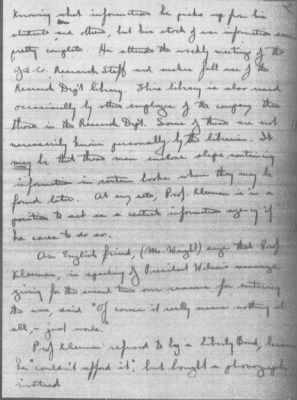 knowing what information he picks up from his
students and others, but his stock of war information seems
pretty complete. He attends the weekly meeting of the
G.E. Co. Research Staff and makes full use of the
Research Dep't library. This library is also used
occasionally by other employees of the company than
those in the Research Dep't. Some of these are not
necessarily known personally by the librarian. It
may be that these men enclose slips containing
information in certain books where they may be
found later. At any rate, Prof. Kleeman is in a
position to act as a central information agency if
he cares to do so.
An English friend, (Mr. Wright) says that Prof
Kleeman, in speaking of President Wilson's message
giving for the second time our reasons for entering
the war, said "Of course it really means nothing at
all, - just words."
Prof Kleeman refused to buy a Liberty Bond, because
he "couldn't afford it", but bought a phonograph
instead